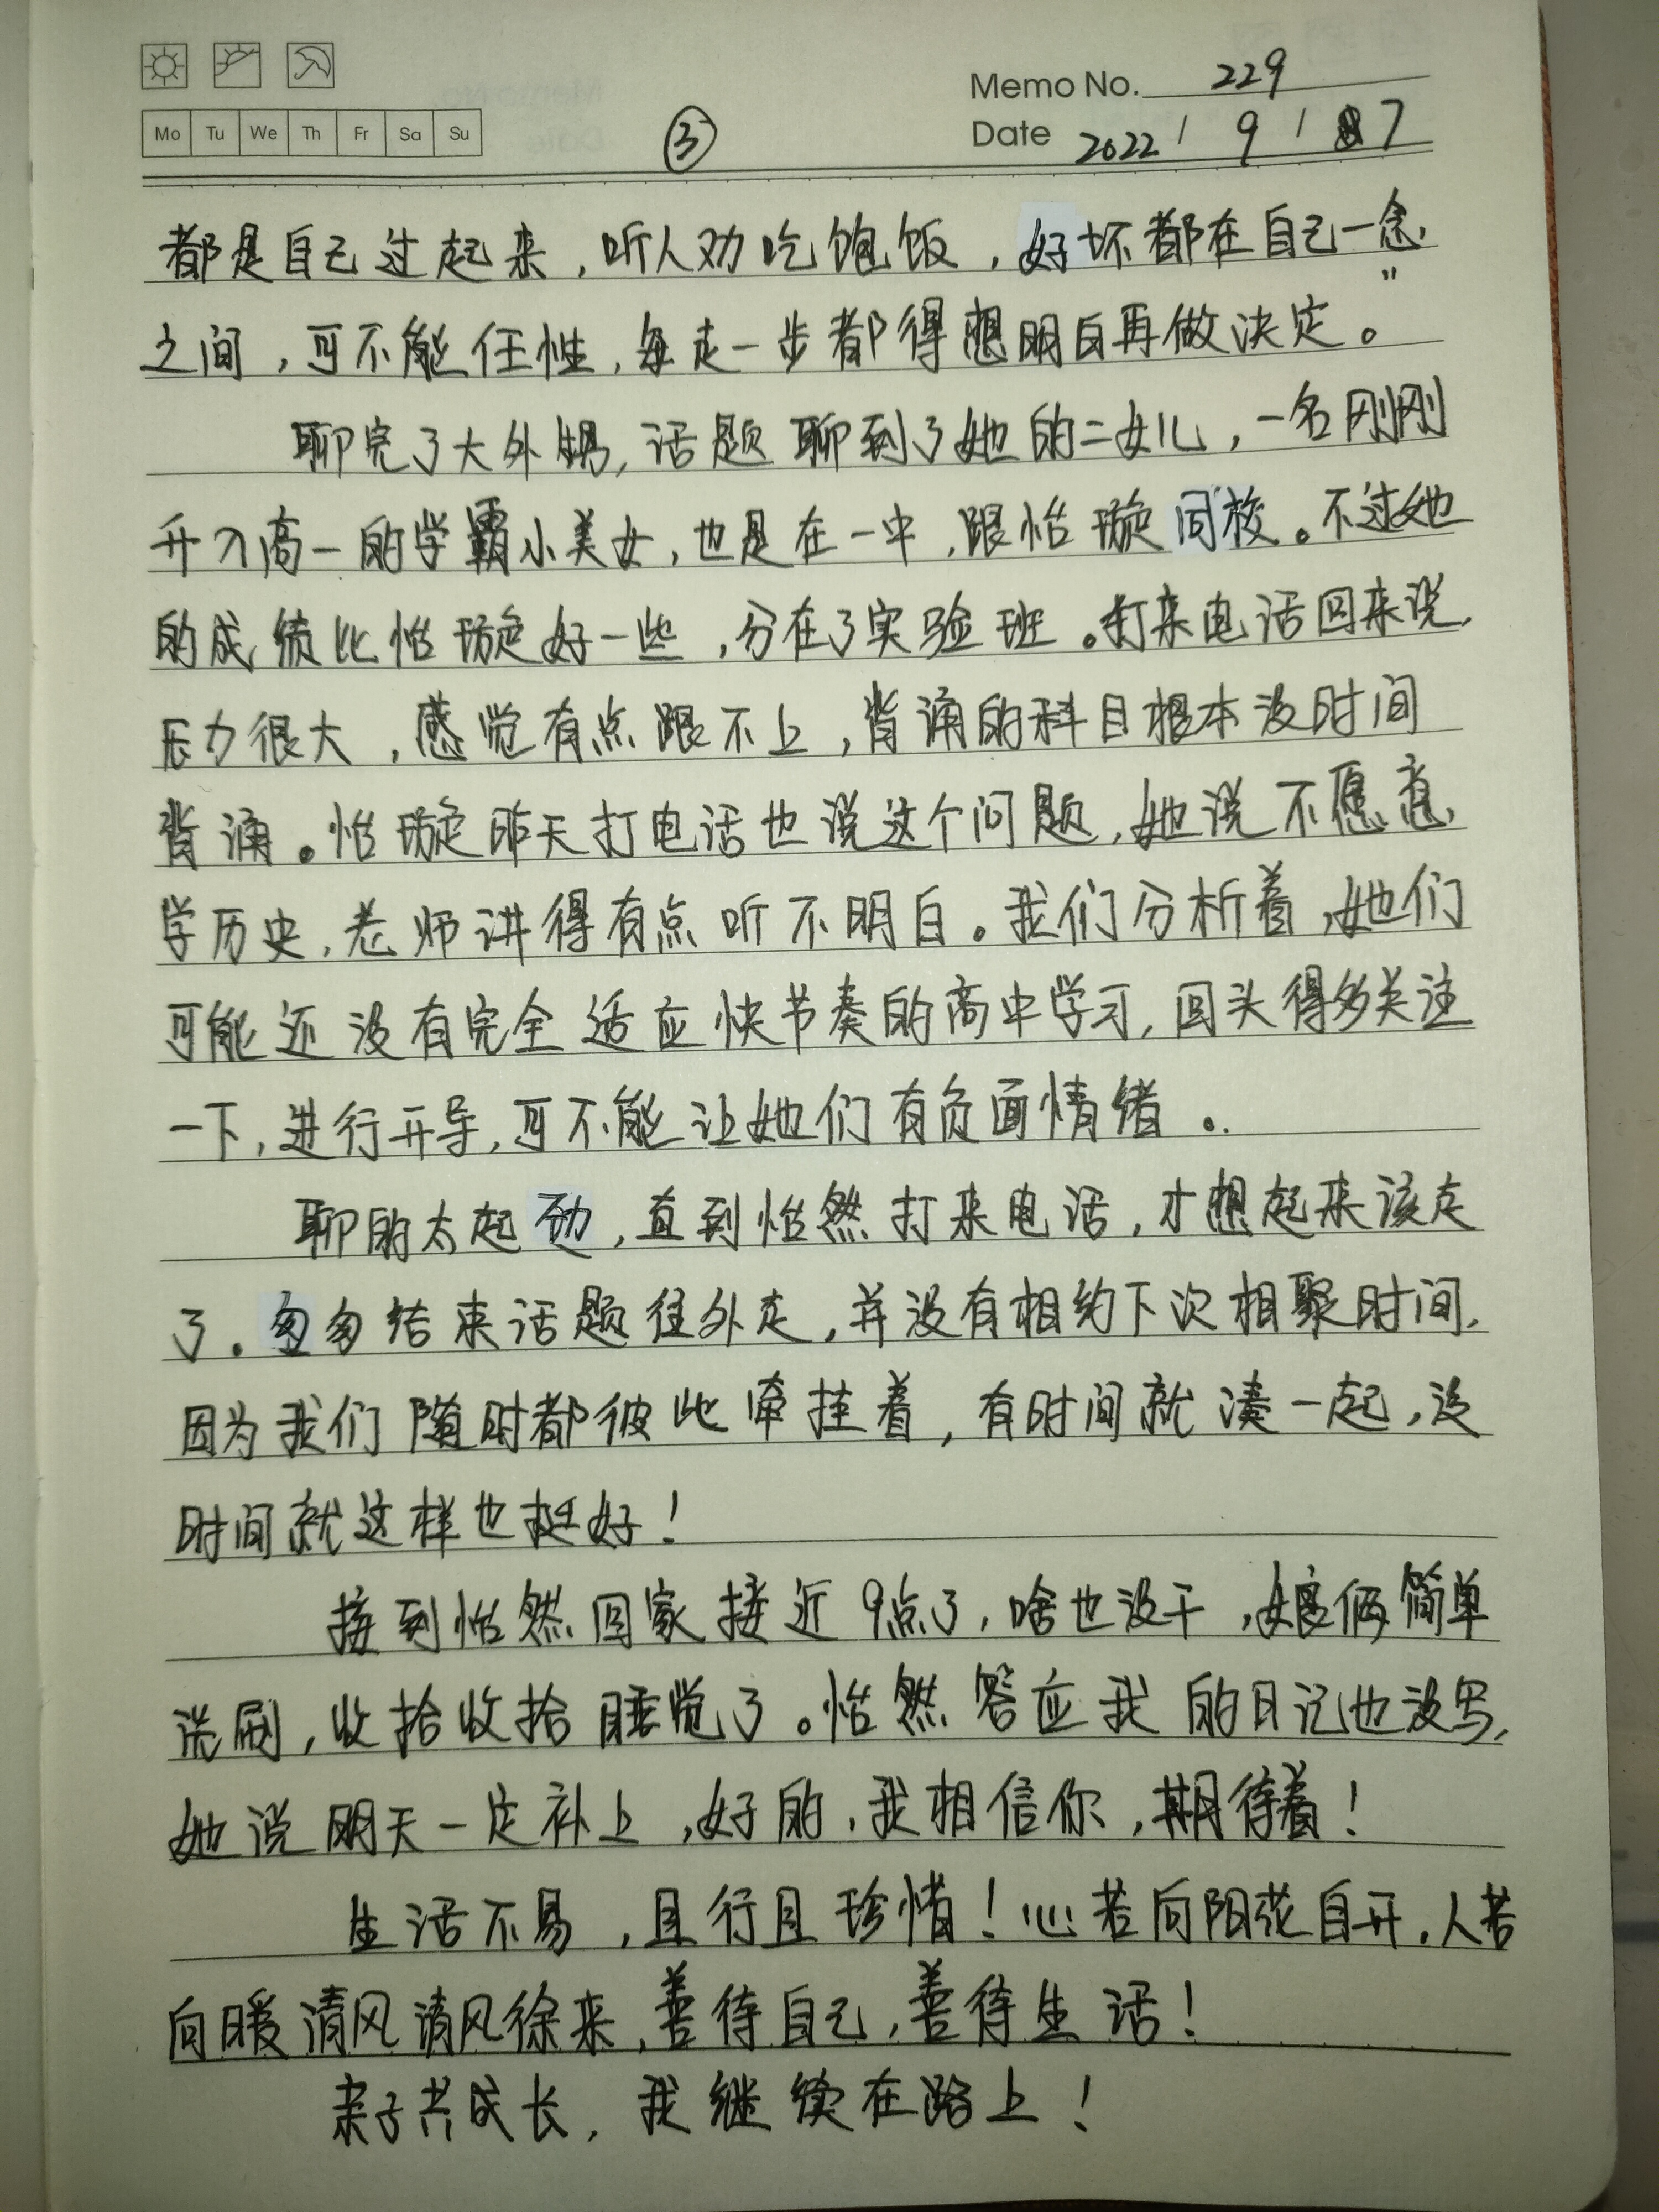 Memo No. 229
Mo Tu We Th Fr Sa Su
③
Date 2022 / 9 / 7
都是自己过起来，听人劝吃饱饭，好坏都在自己一念
之间，可不能任性，每走一步都得想明白再做决定。”
聊完了大外甥，话题聊到了她的二女儿，一名刚刚
升入高一的学霸小美女，也是在一中，跟怡璇同校。不过她
的成绩比怡璇好一些，分在了实验班。打来电话回来说，
压力很大，感觉有点跟不上，背诵的科目根本没时间
背诵。怡璇昨天打电话也说这个问题，她说不愿意
学历史，老师讲得有点听不明白。我们分析着，她们
可能还没有完全适应快节奏的高中学习，回头得多关注
一下，进行开导，可不能让她们有负面情绪。
聊的太起劲，直到怡然打来电话，才想起来该走
了。匆匆结束话题往外走，并没有相约下次相聚时间，
因为我们随时都彼此牵挂着，有时间就凑一起，没
时间就这样也挺好！
接到怡然回家接近9点了，啥也没干，娘俩简单
洗刷，收拾收拾睡觉了。怡然答应我的日记也没写，
她说明天一定补上，好的，我相信你，期待着！
生活不易，且行且珍惜！心若向阳花自开，人若
向暖清风清风徐来，善待自己，善待生活！
亲子共成长，我继续在路上！